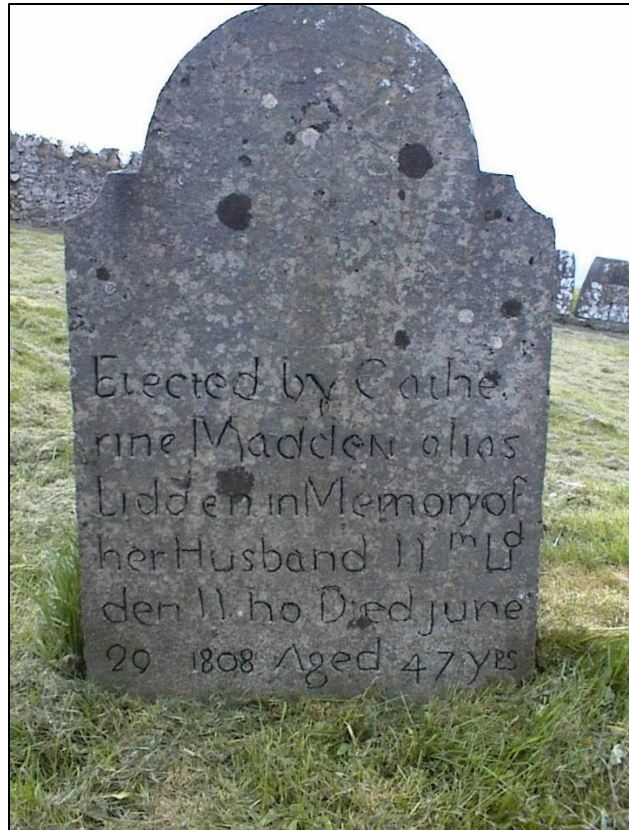 Erected by Cathe
rine Madden alias
Lidden in Memory of
her Husband Wm Lid
den Who Died june
29 1808 Aged 47 yrs